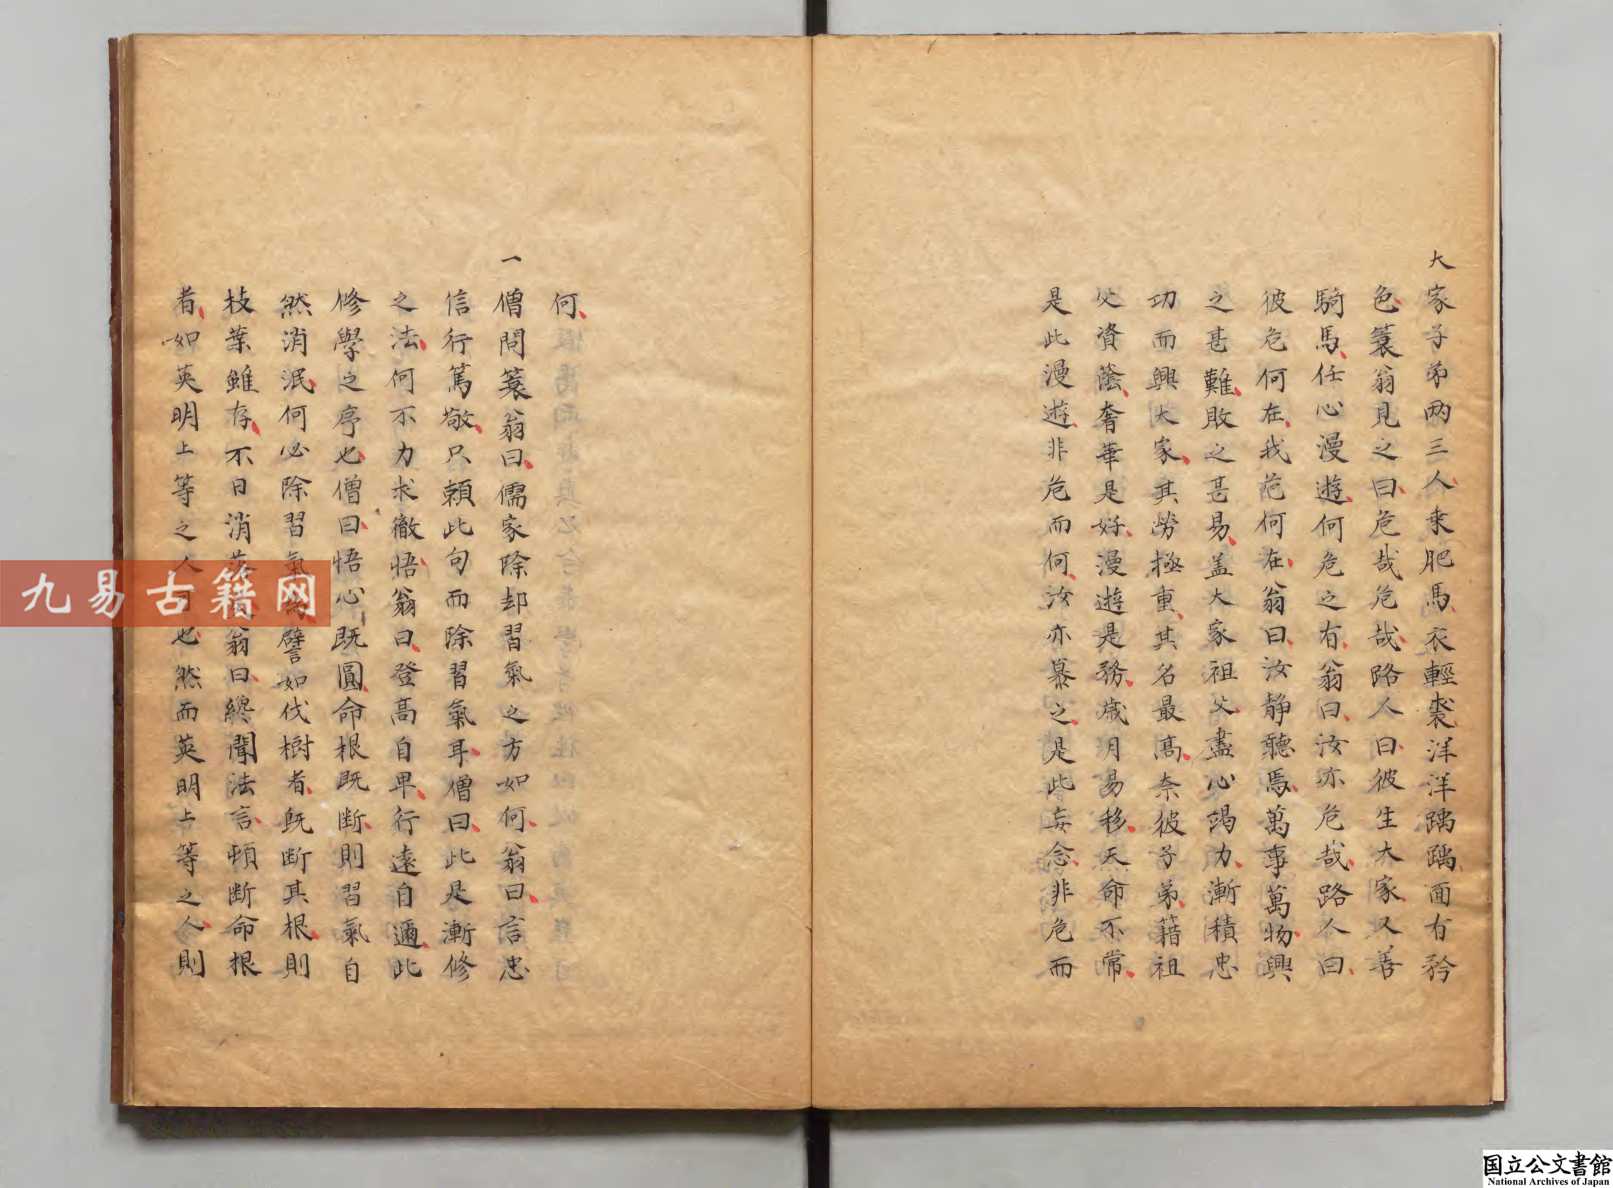 大家子弟两三人乗肥馬衣輕裘洋洋踽踽面有矜
色蓑翁見之曰危哉危哉路人曰彼生大家又善
騎馬任心漫遊何危之有翁曰汝亦危哉路人曰
彼危何在我危何在翁曰汝静聽焉萬事萬物興
之甚難敗之甚易盖大家祖父盡心竭力漸積忠
功而興大家其勞極重其名最髙奈彼子弟藉祖
父資蔭奢華是好漫遊是務歳月易移天命不常
是此漫遊非危而何汝亦慕之是此妄念非危而
何
一
僧問蓑翁曰儒家除却習氣之方如何翁曰言忠
信行篤敬只賴此句而除習氣耳僧曰此是漸修
之法何不力求徹悟翁曰登髙自卑行遠自邇此
修學之序也僧曰悟心既圓命根既断則習氣自
然消泯何必除習氣譬如伐樹者既断其根則
枝葉雖存不日消落翁曰纔聞法言頓断命根
者如英明上等之人可也然而英明上等之人則
九易古籍网
国立公文書館
National Archives of Japan